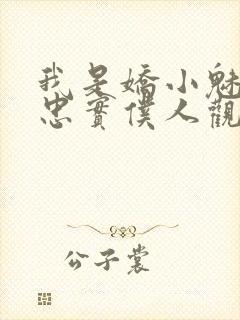 我是嬌小魅
忠實僕人觀
公子裳